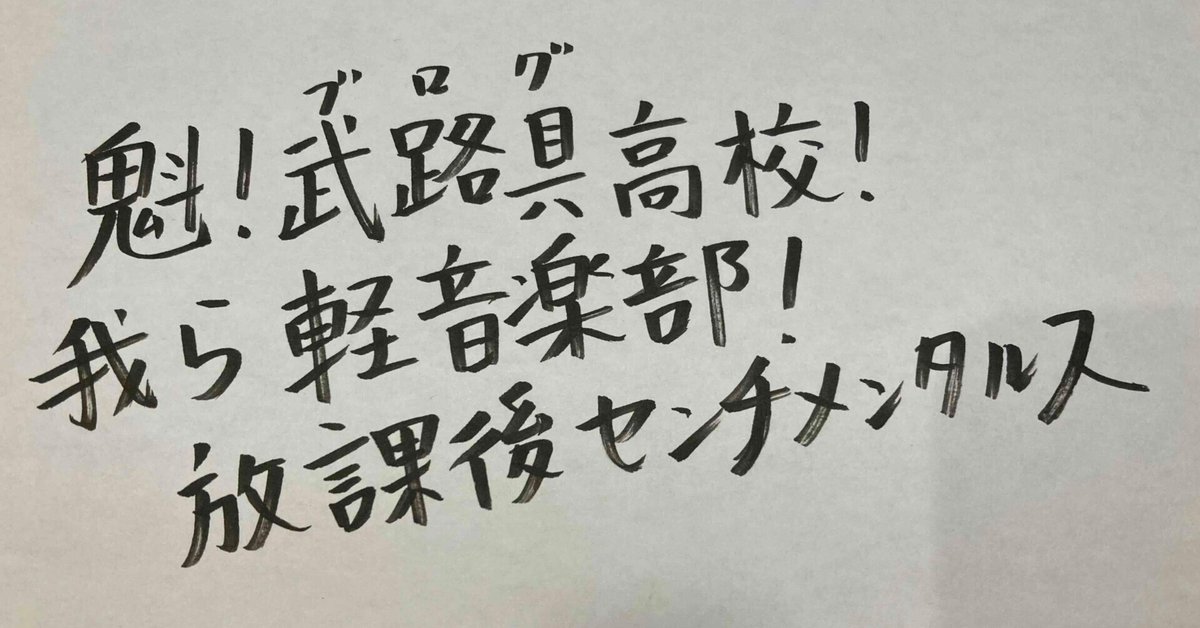 ブログ
魁!武路具高校!
我ら軽音楽部!
放課後センチメンタルス